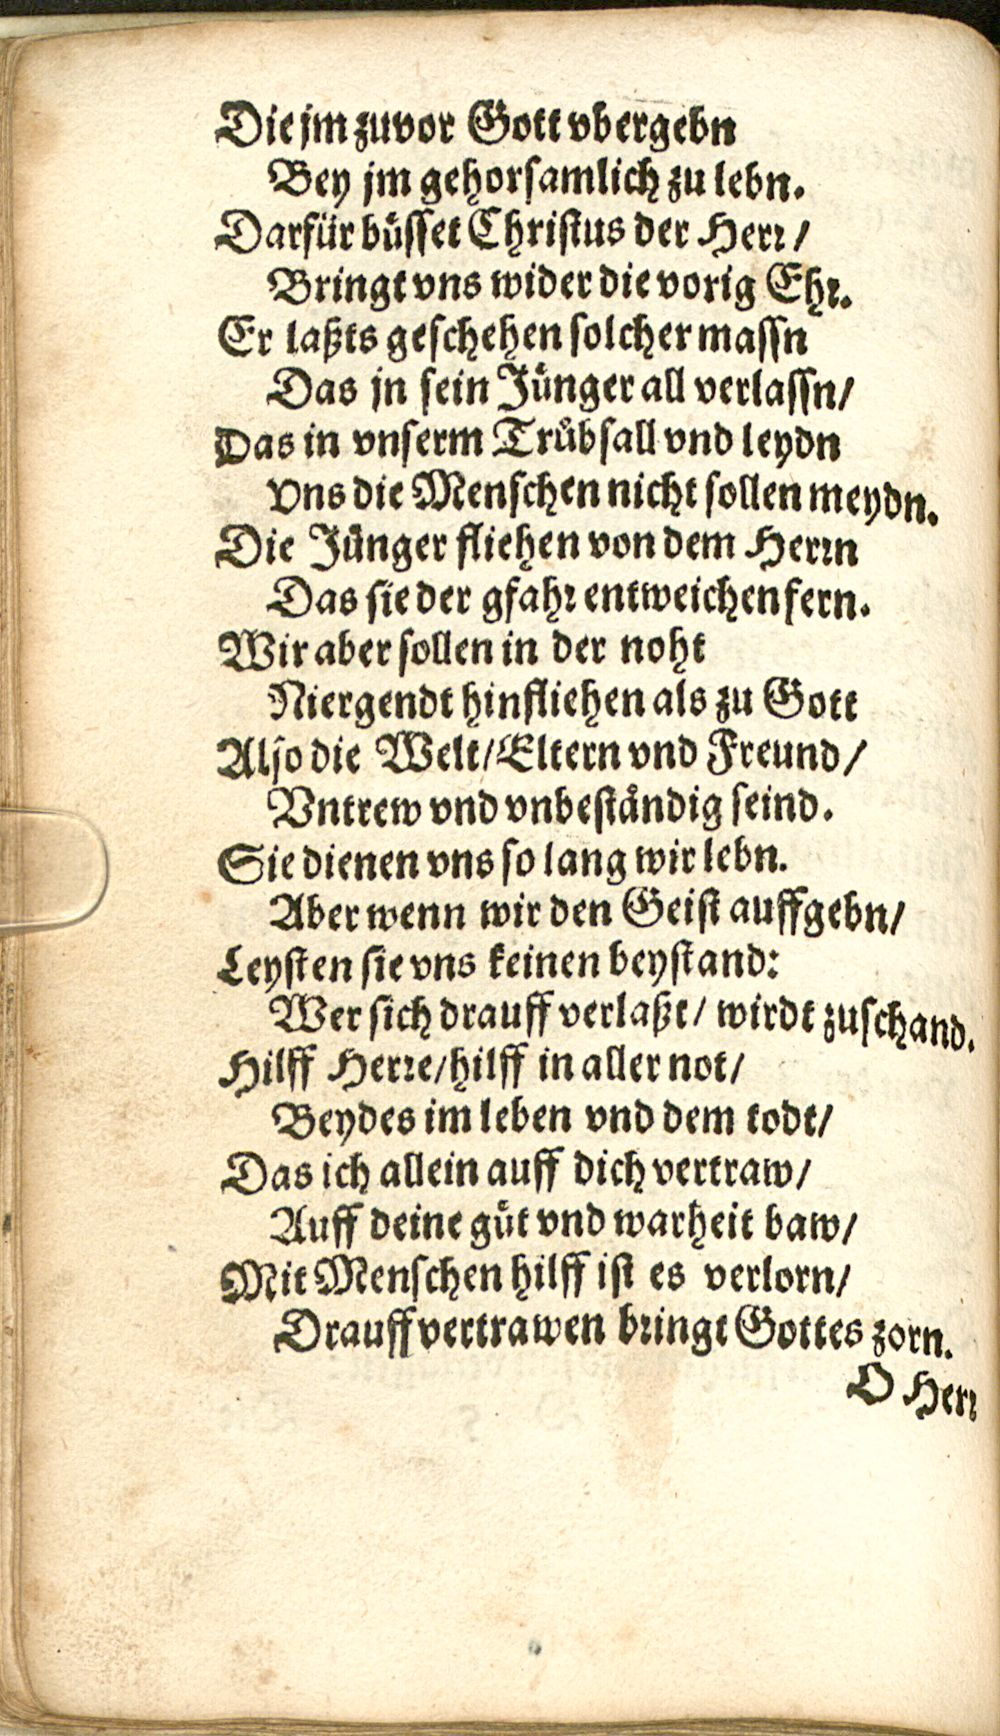 Die jm zuvor Gott vbergebn
Bey jm gehorsamlich zu lebn.
Darfür büsset Christus der Herr /
Bringt vns wider die vorig Ehr.
Er laßts geschehen solcher massn
Das jn sein Jünger all verlassn/
Das in vnserm Trübsall vnd leydn
Vns die Menschen nicht sollen meydn.
Die Jünger fliehen von dem Herrn
Das sie der gfahr entweichen fern.
Wir aber sollen in der noht
Niergendt hinfliehen als zu Gott
Also die Welt/Eltern vnd Freund/
Vntrew vnd vnbeständig seind.
Sie dienen vns so lang wir lebn.
Aber wenn wir den Geist auffgebn/
Leysten sie vns keinen beystand:
Wer sich drauff verlaßt/ wirdt zuschand.
Hilff Herre/hilff in aller not/
Beydes im leben vnd dem todt/
Das ich allein auff dich vertraw/
Auff deine güt vnd warheit baw/
Mit Menschen hilff ist es verlorn/
Drauff vertrawen bringt Gottes zorn.
O Herr